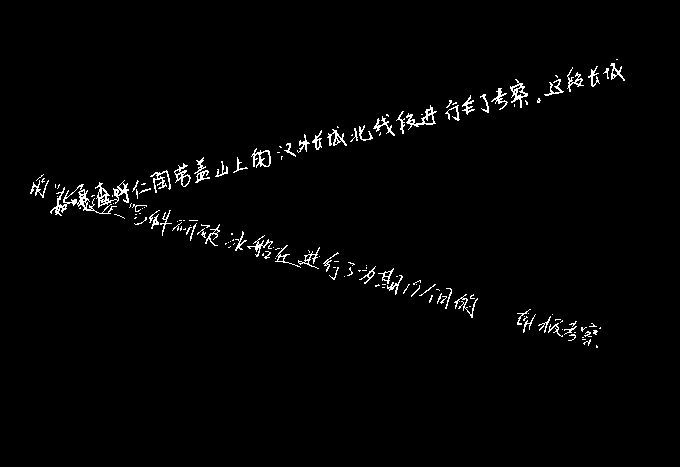 渣呼仁陶劳盖山上的汉外长城北线段进行了考察。这段长城
的"号科研破冰船在进行了为期17个月的 南极考察